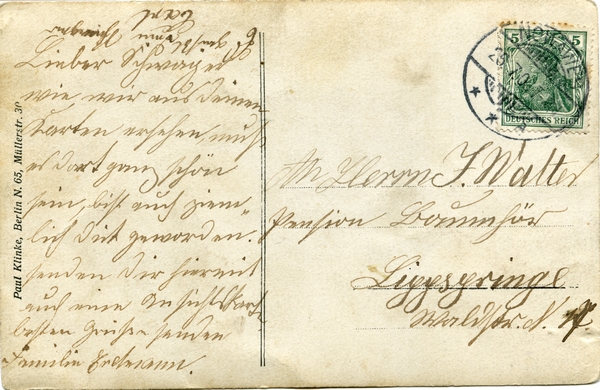 Lieber Schwager
wie wir aus Deinen
Karten ersehen, muß
es dort ganz schön
sein, bist auch ziem-
lich dick geworden.
senden Dir hiermit
auch eine Ansichtskarte
besten Grüße senden
Familie
Paul Klinke, Berlin N. 65, Müllerstr. 30
5 5
DEUTSCHES REICH
NOWAWES
An Herrn J. Walter
Pension Baumhör
Lippspringe
Waldstr. N.